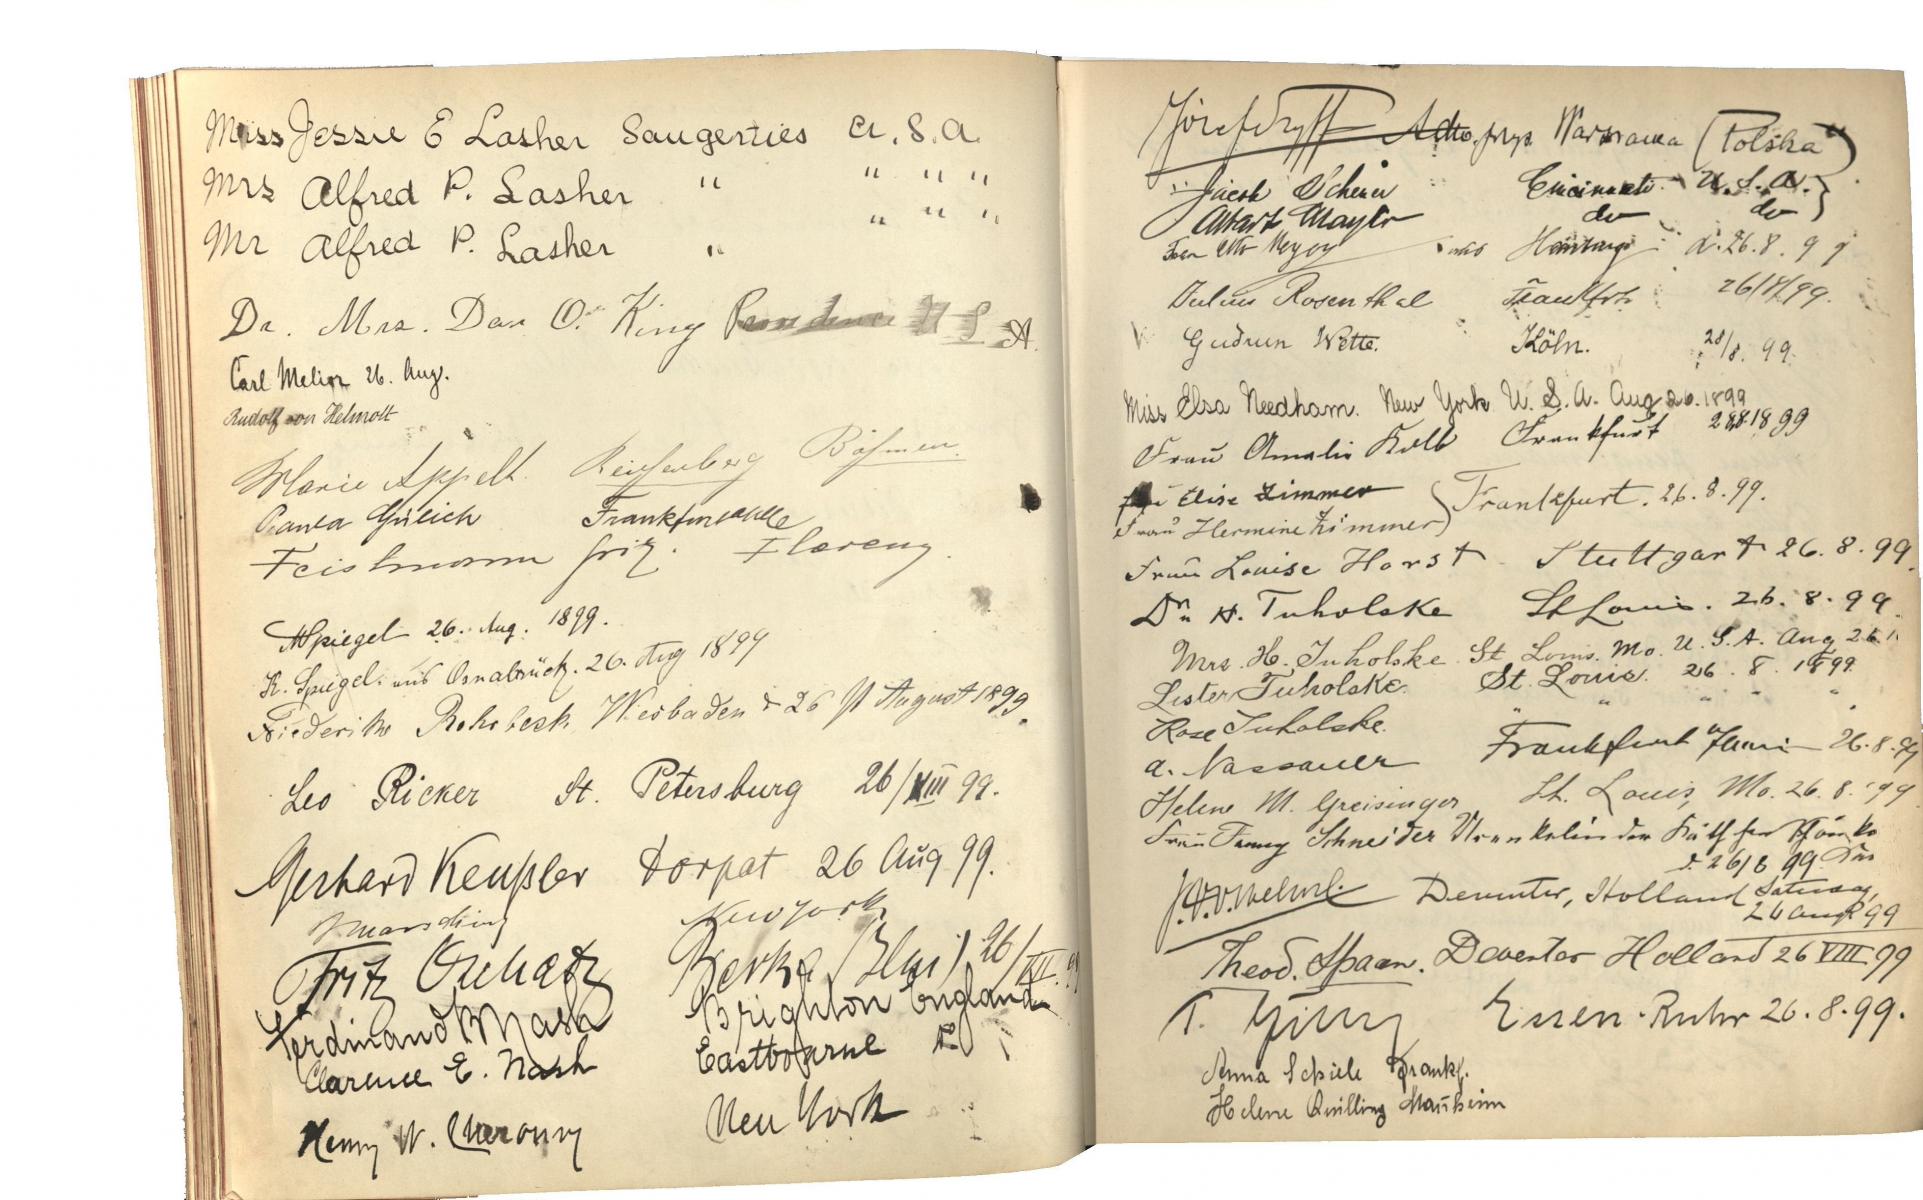 Miss Jessie E Lasher Saugerties U.S.A.
Mrs Alfred P. Lasher " " " "
Mr Alfred P. Lasher " " " "
Dr. Mrs. Dan O. King Providence U S A.
Carl Melior 26. Aug.
Rudolf von Helmolt
Marie Appelt. Reichenberg Böhmen.
Gülich Frankfurt
Feistmann Florenz.
Spiegel 26. Aug. 1899.
K. Spiegel. aus Osnabrück. 26. Aug 1899
Friederike Rohrbeck Wiesbaden d 26 August 1899.
Leo Ricker St. Petersburg 26/VIII 99.
Gerhard Keußler Dorpat 26 Aug 99.
New York
Fritz Berka 26/ 99
Ferdinand Nash Brighton England
Clarence E. Nash Eastbourne Do
Henry W. New York
Józef Warszawa (Polska)
Jacob Scherer Cincinnati U.S.A.
Albert Mayer do do
Frau Otto Meyer aus d. 26.8.99
Julius Rosenthal Frankfrt. 26/8/99.
Gudrun Wette. Köln. 28/8. 99.
Miss Elsa Needham. New York U.S.A. Aug 26.1899
Frau Amalie Kolb Frankfurt 1899
Frau Elise Zimmer
Frau Hermine Zimmer } Frankfurt. 26.8.99.
Frau Louise Horst Stuttgart 26.8.99.
Dr. H. Tuholske St Louis. 26.8.99.
Mrs. H. Tuholske St Louis. Mo. U.S.A. Aug 26.
Lester Tuholske. St. Louis. 26.8.1899.
Rose Tuholske. " " " " "
A. Nassauer Frankfurt a/Main 26.8.99
Helene M. Greisinger St. Louis, Mo. 26.8.'99
Frau Fanny Schneider
d. 26/8 99
Deventer, Holland Saturday,
26 Aug 99
Theod. Spaan. Deventer Holland 26 VIII 99
T. Essen-Ruhr 26.8.99.
Anna Schiele Frankf.
Helene Quilling Mannheim